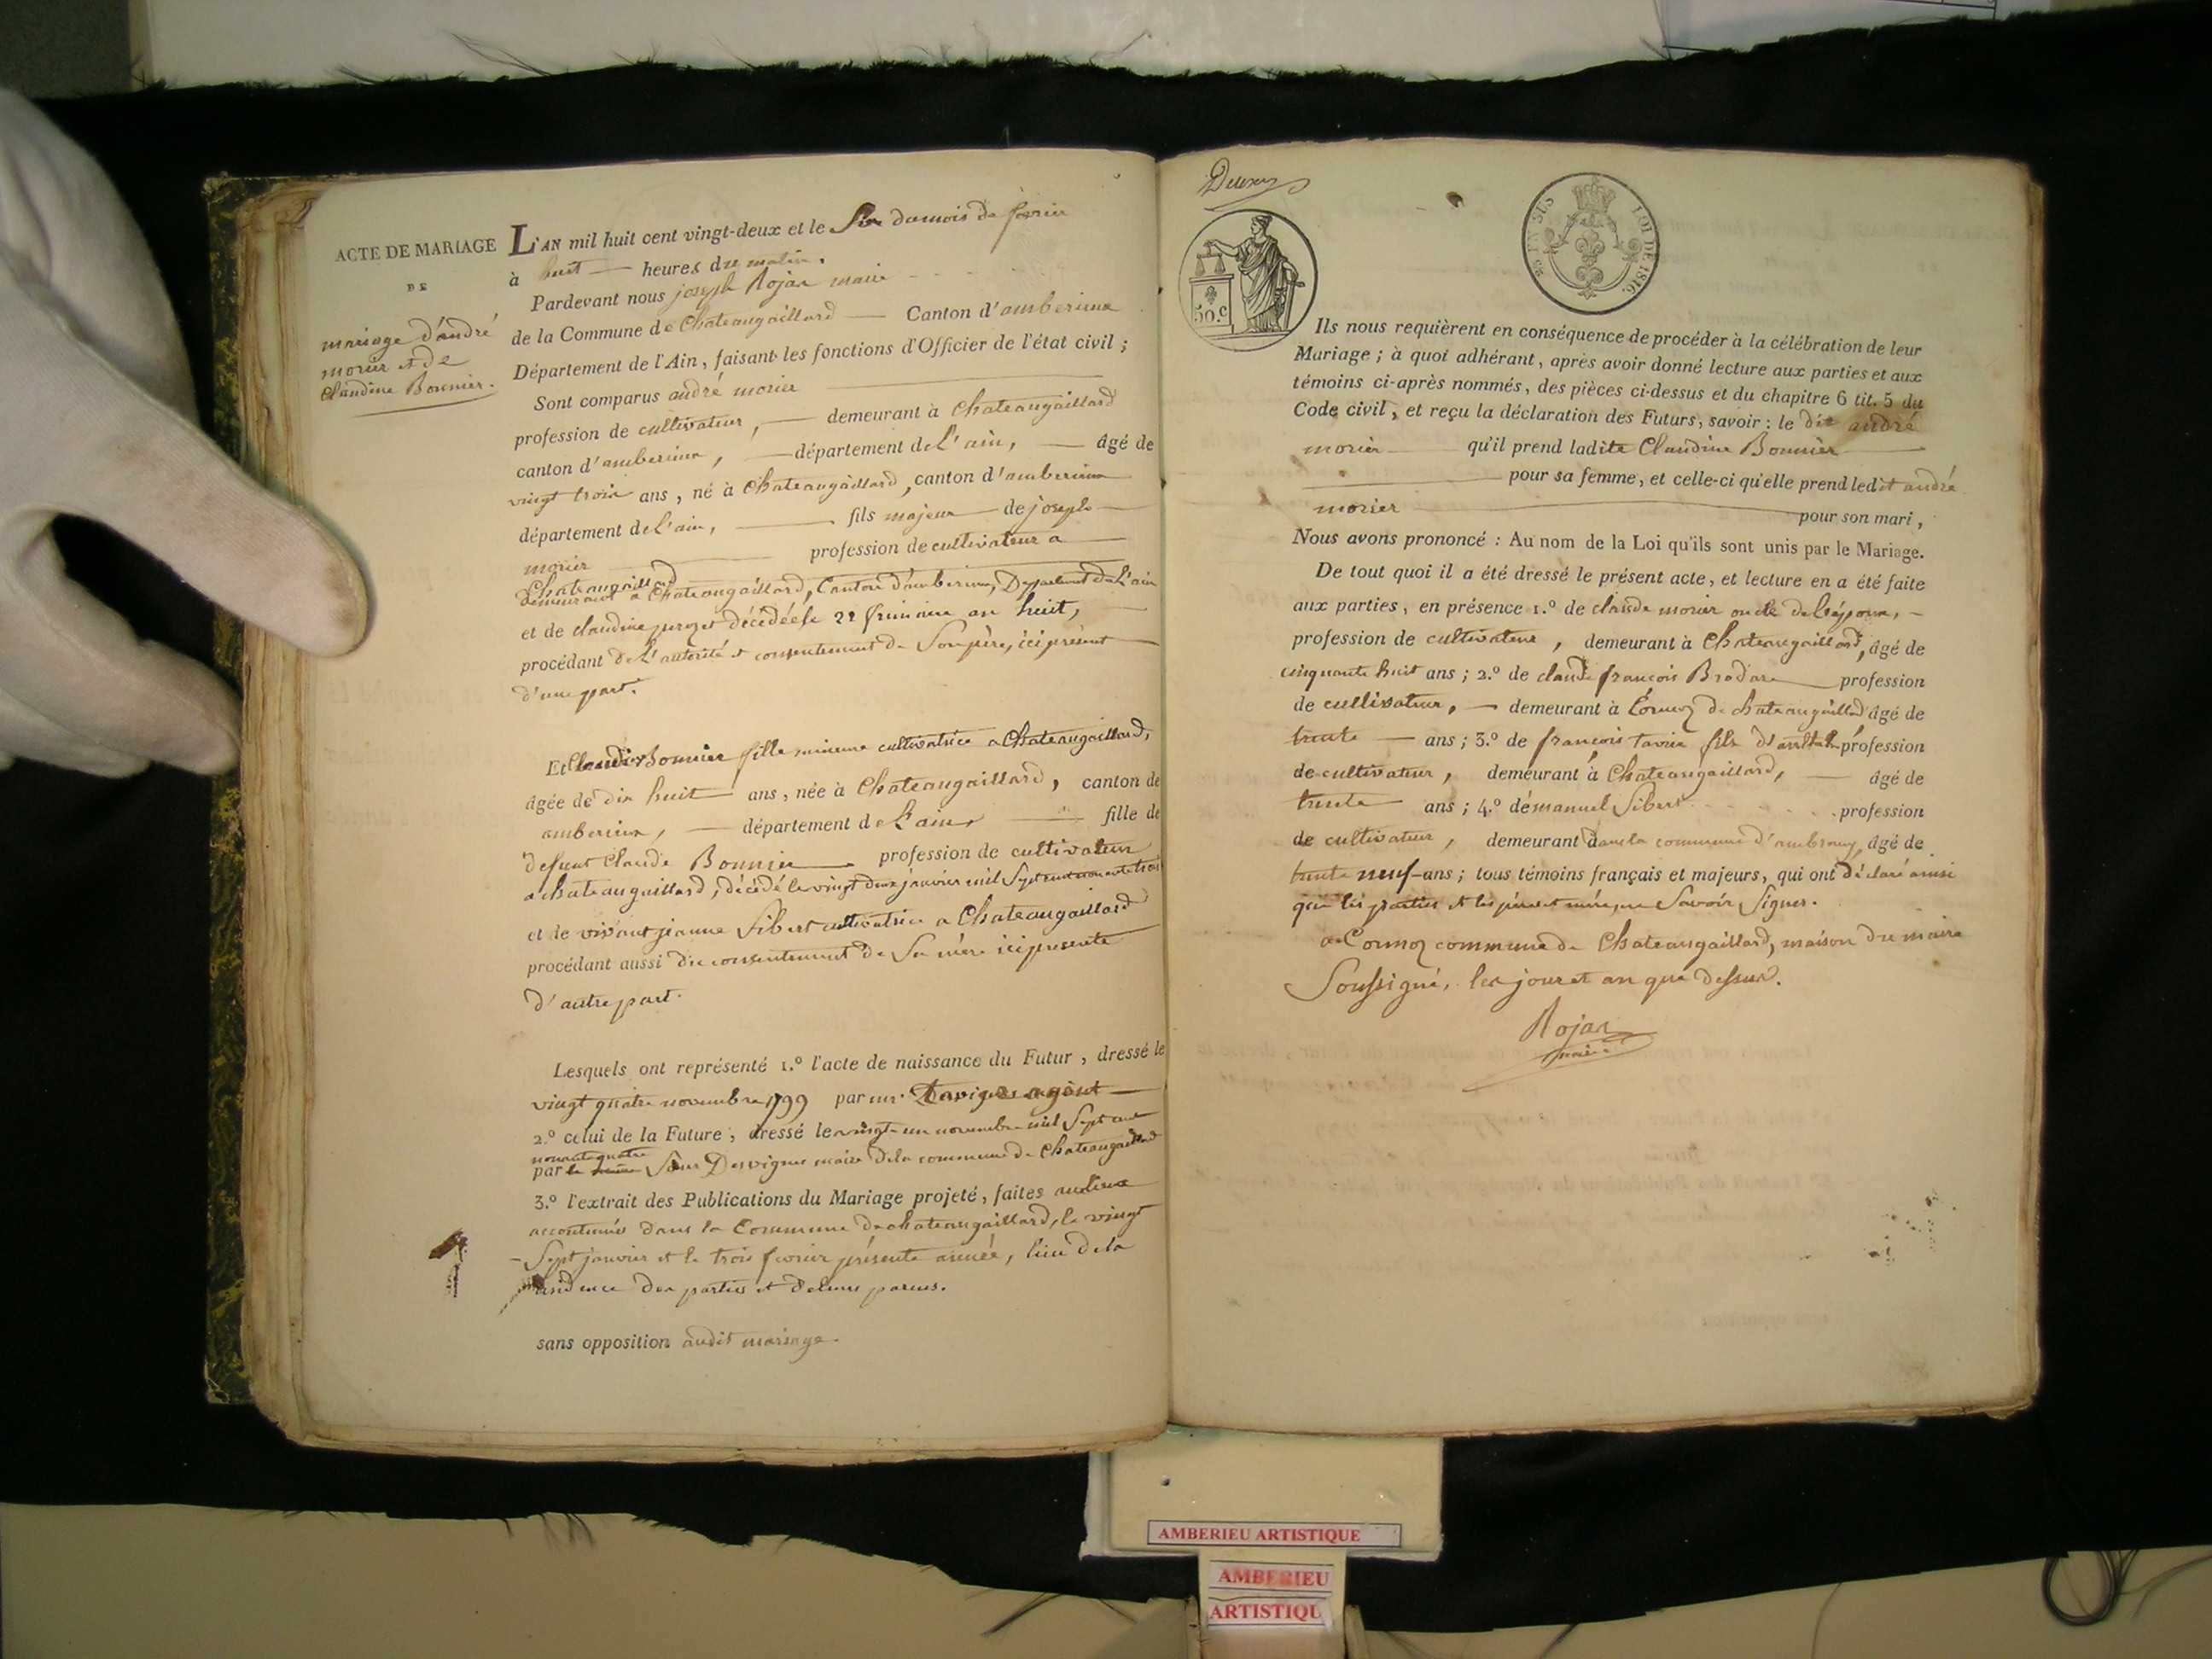 ACTE DE MARIAGE
DE
mariage d'andré
morier et de
Claudine Bonnier.
L'AN mil huit cent vingt-deux et le Six du mois de fevrier
à huit heures du matin.
Pardevant nous joseph Rojan maire
de la Commune de Chateaugaillard Canton d'amberieux
Département de l'Ain, faisant les fonctions d'Officier de l'état civil ;
Sont comparus andré morier
profession de cultivateur, demeurant à Chateaugaillard
canton d'amberieux, département de L'ain, âgé de
vingt trois ans, né à Chateaugaillard, canton d'amberieux
département de L'ain, fils majeur de joseph
morier profession de cultivateur a
Chateaugaillard
demeurant a Chateaugaillard, Canton d'amberieux, Département de L'ain
et de claudine décédée le 22 frimaire an huit,
procédant de L'autorité et consentement de Son père, ici présent
d'une part.
Et Claudine Bonnier fille mineure cultivatrice a Chateaugaillard,
âgée de dix huit ans, née à Chateaugaillard, canton de
amberieux, département de L'ain fille de
defunt Claude Bonnier profession de cultivateur
a chateaugaillard, décédé le vingt deux janvier mil Sept cent nonante trois
et de vivant jeanne Sibert cultivatrice a Chateaugaillard
procédant aussi du consentement de Sa mère ici presente
d'autre part.
Lesquels ont représenté 1.º l'acte de naissance du Futur, dressé le
vingt quatre novembre 1799 par mr. agent
2.º celui de la Future, dressé le vingt un novembre mil Sept cent
nonante quatre
par le Sieur Desvignes maire de la commune de Chateaugaillard
3.º l'extrait des Publications du Mariage projeté, faites aux lieux
accoutumés dans la Commune de chateaugaillard, le vingt
Sept janvier et le trois fevrier présente année, lieu de la
résidence des parties et de leurs parens.
sans opposition audit mariage.
50.C
EN SUS
LOI DE 1816.
Ils nous requièrent en conséquence de procéder à la célébration de leur
Mariage ; à quoi adhérant, après avoir donné lecture aux parties et aux
témoins ci-après nommés, des pièces ci-dessus et du chapitre 6 tit. 5 du
Code civil, et reçu la déclaration des Futurs, savoir : le dit andré
morier qu'il prend ladite Claudine Bonnier
pour sa femme, et celle-ci qu'elle prend ledit andré
morier pour son mari,
Nous avons prononcé : Au nom de la Loi qu'ils sont unis par le Mariage.
De tout quoi il a été dressé le présent acte, et lecture en a été faite
aux parties, en présence 1.º de claude morier oncle de L'époux,
profession de cultivateur, demeurant à Chateaugaillard, âgé de
cinquante huit ans ; 2.º de claude françois profession
de cultivateur, demeurant à Cormoz de chateaugaillard âgé de
trente ans ; 3.º de françois fils profession
de cultivateur, demeurant à Chateaugaillard, âgé de
trente ans ; 4.º d'émanuel Sibert profession
de cultivateur, demeurant dans la commune d'ambronay, âgé de
trente neuf ans ; tous témoins français et majeurs, qui ont déclaré ainsi
que les parties et les père et mère, ne Savoir Signer.
a Cormoz commune de Chateaugaillard, maison du maire
Soussigné, les jour et an que dessus.
Rojan
maire
AMBERIEU ARTISTIQUE
AMBERIEU
ARTISTIQU